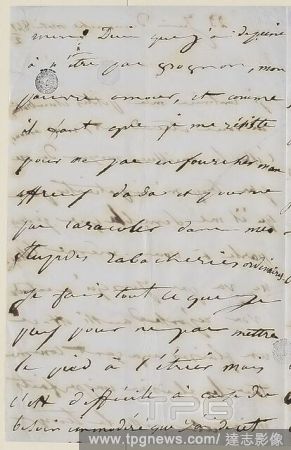 merci Dieu que j'ai
à n'être pas grognon, mon
pauvre amour, et comme
il faut que je me résiste
pour ne pas enfourcher mon
affreux dada et pour ne
pas caracoler dans mes
stupides rabacheries ordinaires
Je fais tout ce que je
puis pour ne pas mettre
le pied à l'étrier mais
c'est difficile à cause du
besoin immodéré que j'ai de
TPG
www.tpgnews.com / 達志影像